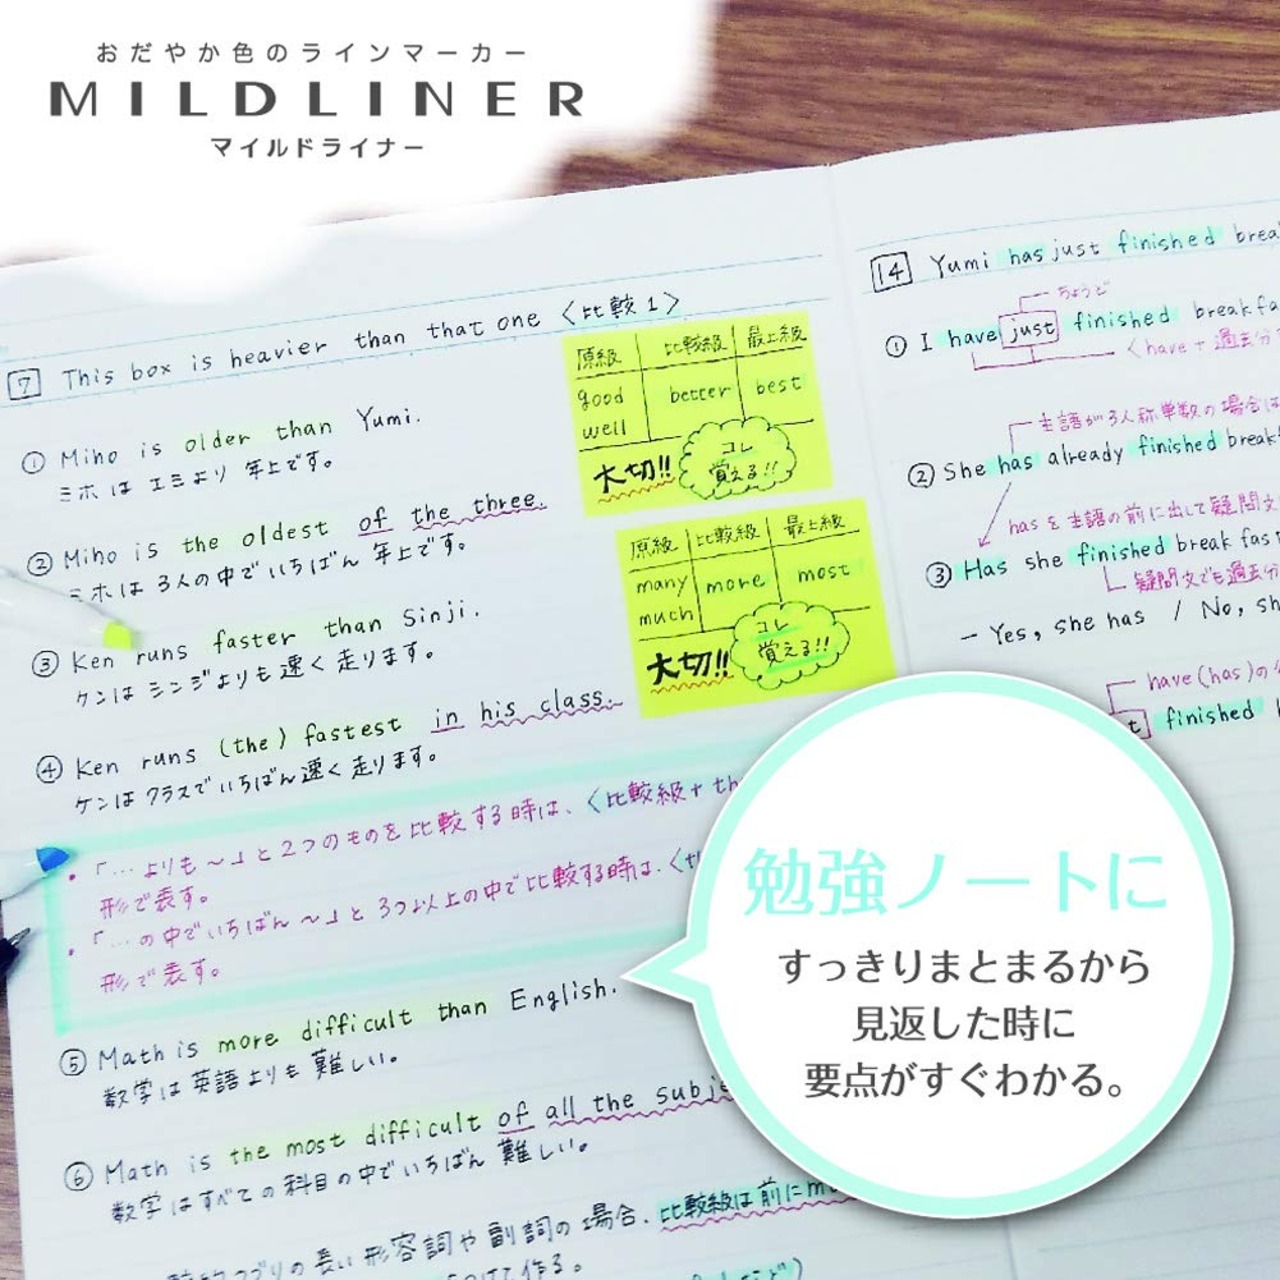 おだやか色のラインマーカー
MILDLINER
マイルドライナー
7 This box is heavier than that one 〈比較1〉
① Miho is older than Yumi.
ミホは エミより 年上です。
② Miho is the oldest of the three.
ミホは 3人の中でいちばん 年上です。
③ Ken runs faster than Sinji.
ケンは シンジよりも 速く 走ります。
④ Ken runs (the) fastest in his class.
ケンは クラスで いちばん 速く 走ります。
・「…よりも～」と2つのものを比較する時は、〈比較級+th
形で表す。
・「…の中でいちばん～」と3つ以上の中で比較する時は、〈
形で表す。
⑤ Math is more difficult than English.
数学は英語よりも難しい。
⑥ Math is the most difficult of all the subj
数学はすべての科目の中でいちばん 難しい。
の長い形容詞や副詞の場合、比較級は前にm
て作る。
原級 比較級 最上級
good better best
well
大切!! コレ
覚える!!
原級 比較級 最上級
many more most
much
大切!! コレ
覚える!!
14 Yumi has just finished brea
ちょうど
① I have just finished breakfa
〈have+過去分
主語が3人称単数の場合は
② She has already finished break
hasを主語の前に出して疑問文
③ Has she finished breakfas
疑問文でも過去分
－Yes, she has / No, sh
have(has)の
t finished
勉強ノートに
すっきりまとまるから
見返した時に
要点がすぐわかる。